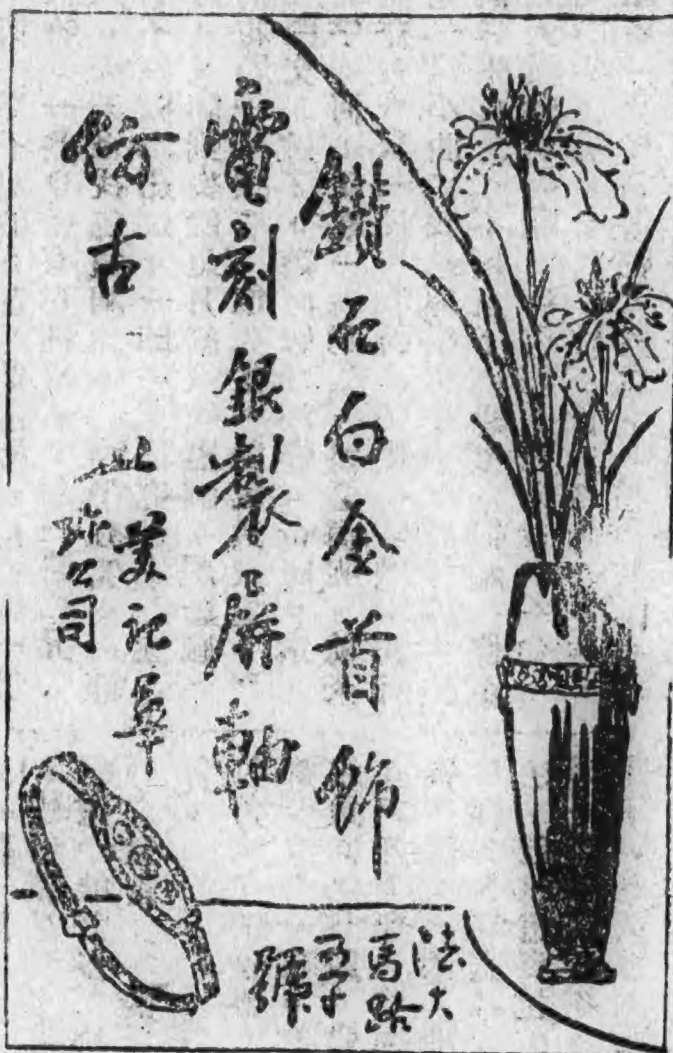 鑽石白金首飾
雷刻銀製屏軸
仿古
美記
公司
法大
馬路
號